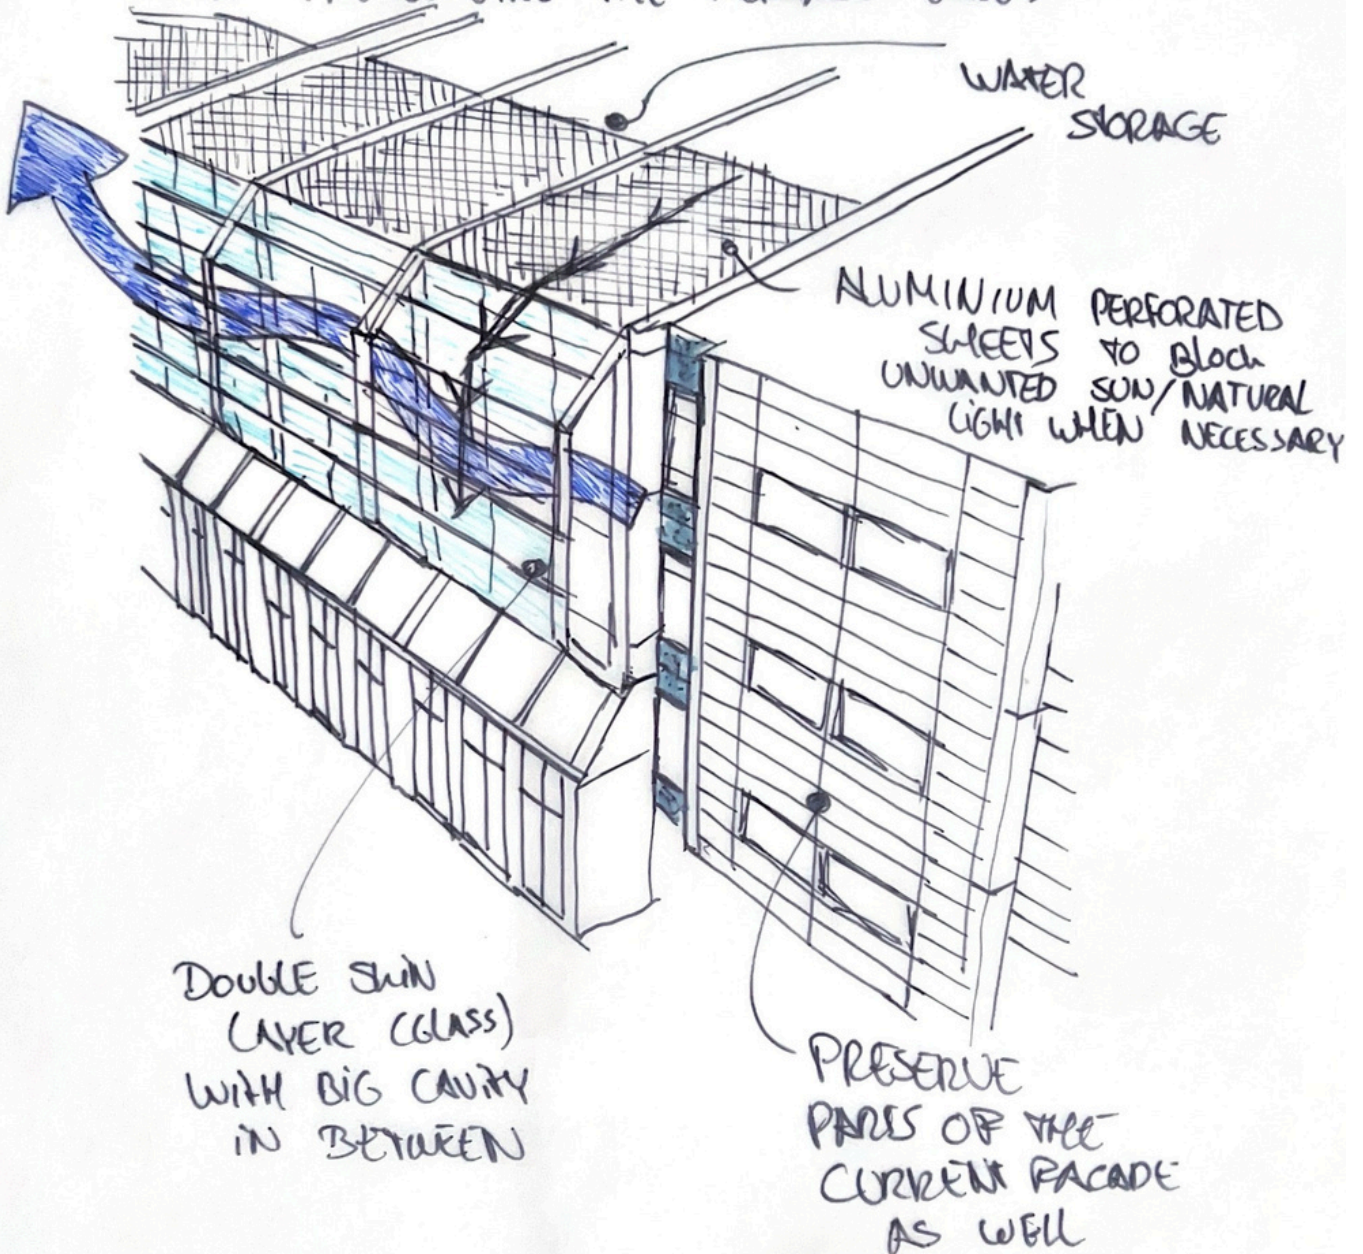 THE
WATER
STORAGE
ALUMINIUM PERFORATED
SHEETS TO BLOCK
UNWANTED SUN/NATURAL
LIGHT WHEN NECESSARY
DOUBLE SKIN
LAYER (GLASS)
WITH BIG CAVITY
IN BETWEEN
PRESERVE
PARTS OF THE
CURRENT FACADE
AS WELL